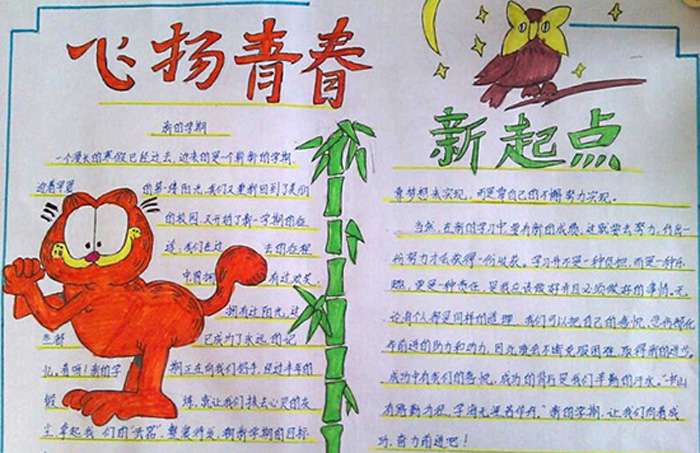 飞扬青春
新的学期
一个漫长的寒假已经过去,迎来的是一个崭新的学期.
迎着早晨的第一缕阳光,我们又重新回到了美丽
的校园.又开始了新一学期的征
途,我们在过去的征程
中曾拥有过欢笑.
拥有过阳光,这
些都已成为了永远的记
忆.看呀!新的学期正在向我们招手,经过半年的
锻炼,就让我们抹去心灵的灰
尘,拿起我们的"武器".整装待发,朝新学期的目标
新起点
靠梦想去实现,而是靠自己的不懈努力实现。
当然,在新的学习中要有新的成绩,这就要去努力,付出一
份努力才会获得一份收获。学习并不是一种负担,而是一种乐
趣,更是一种责任,是我应该做好并且必须做好的事情。无
论有人都是同样的道理,我们可以把自己的喜悦、悲伤都化
作前进的动力和动力,因此唯有不断克服困难,取得新的进步,
成功中有我们的喜悦,成功的背后是我们辛勤的汗水。"书山
有路勤为径,学海无涯苦作舟。"新的学期,让我们向着成
功,奋力前进吧!